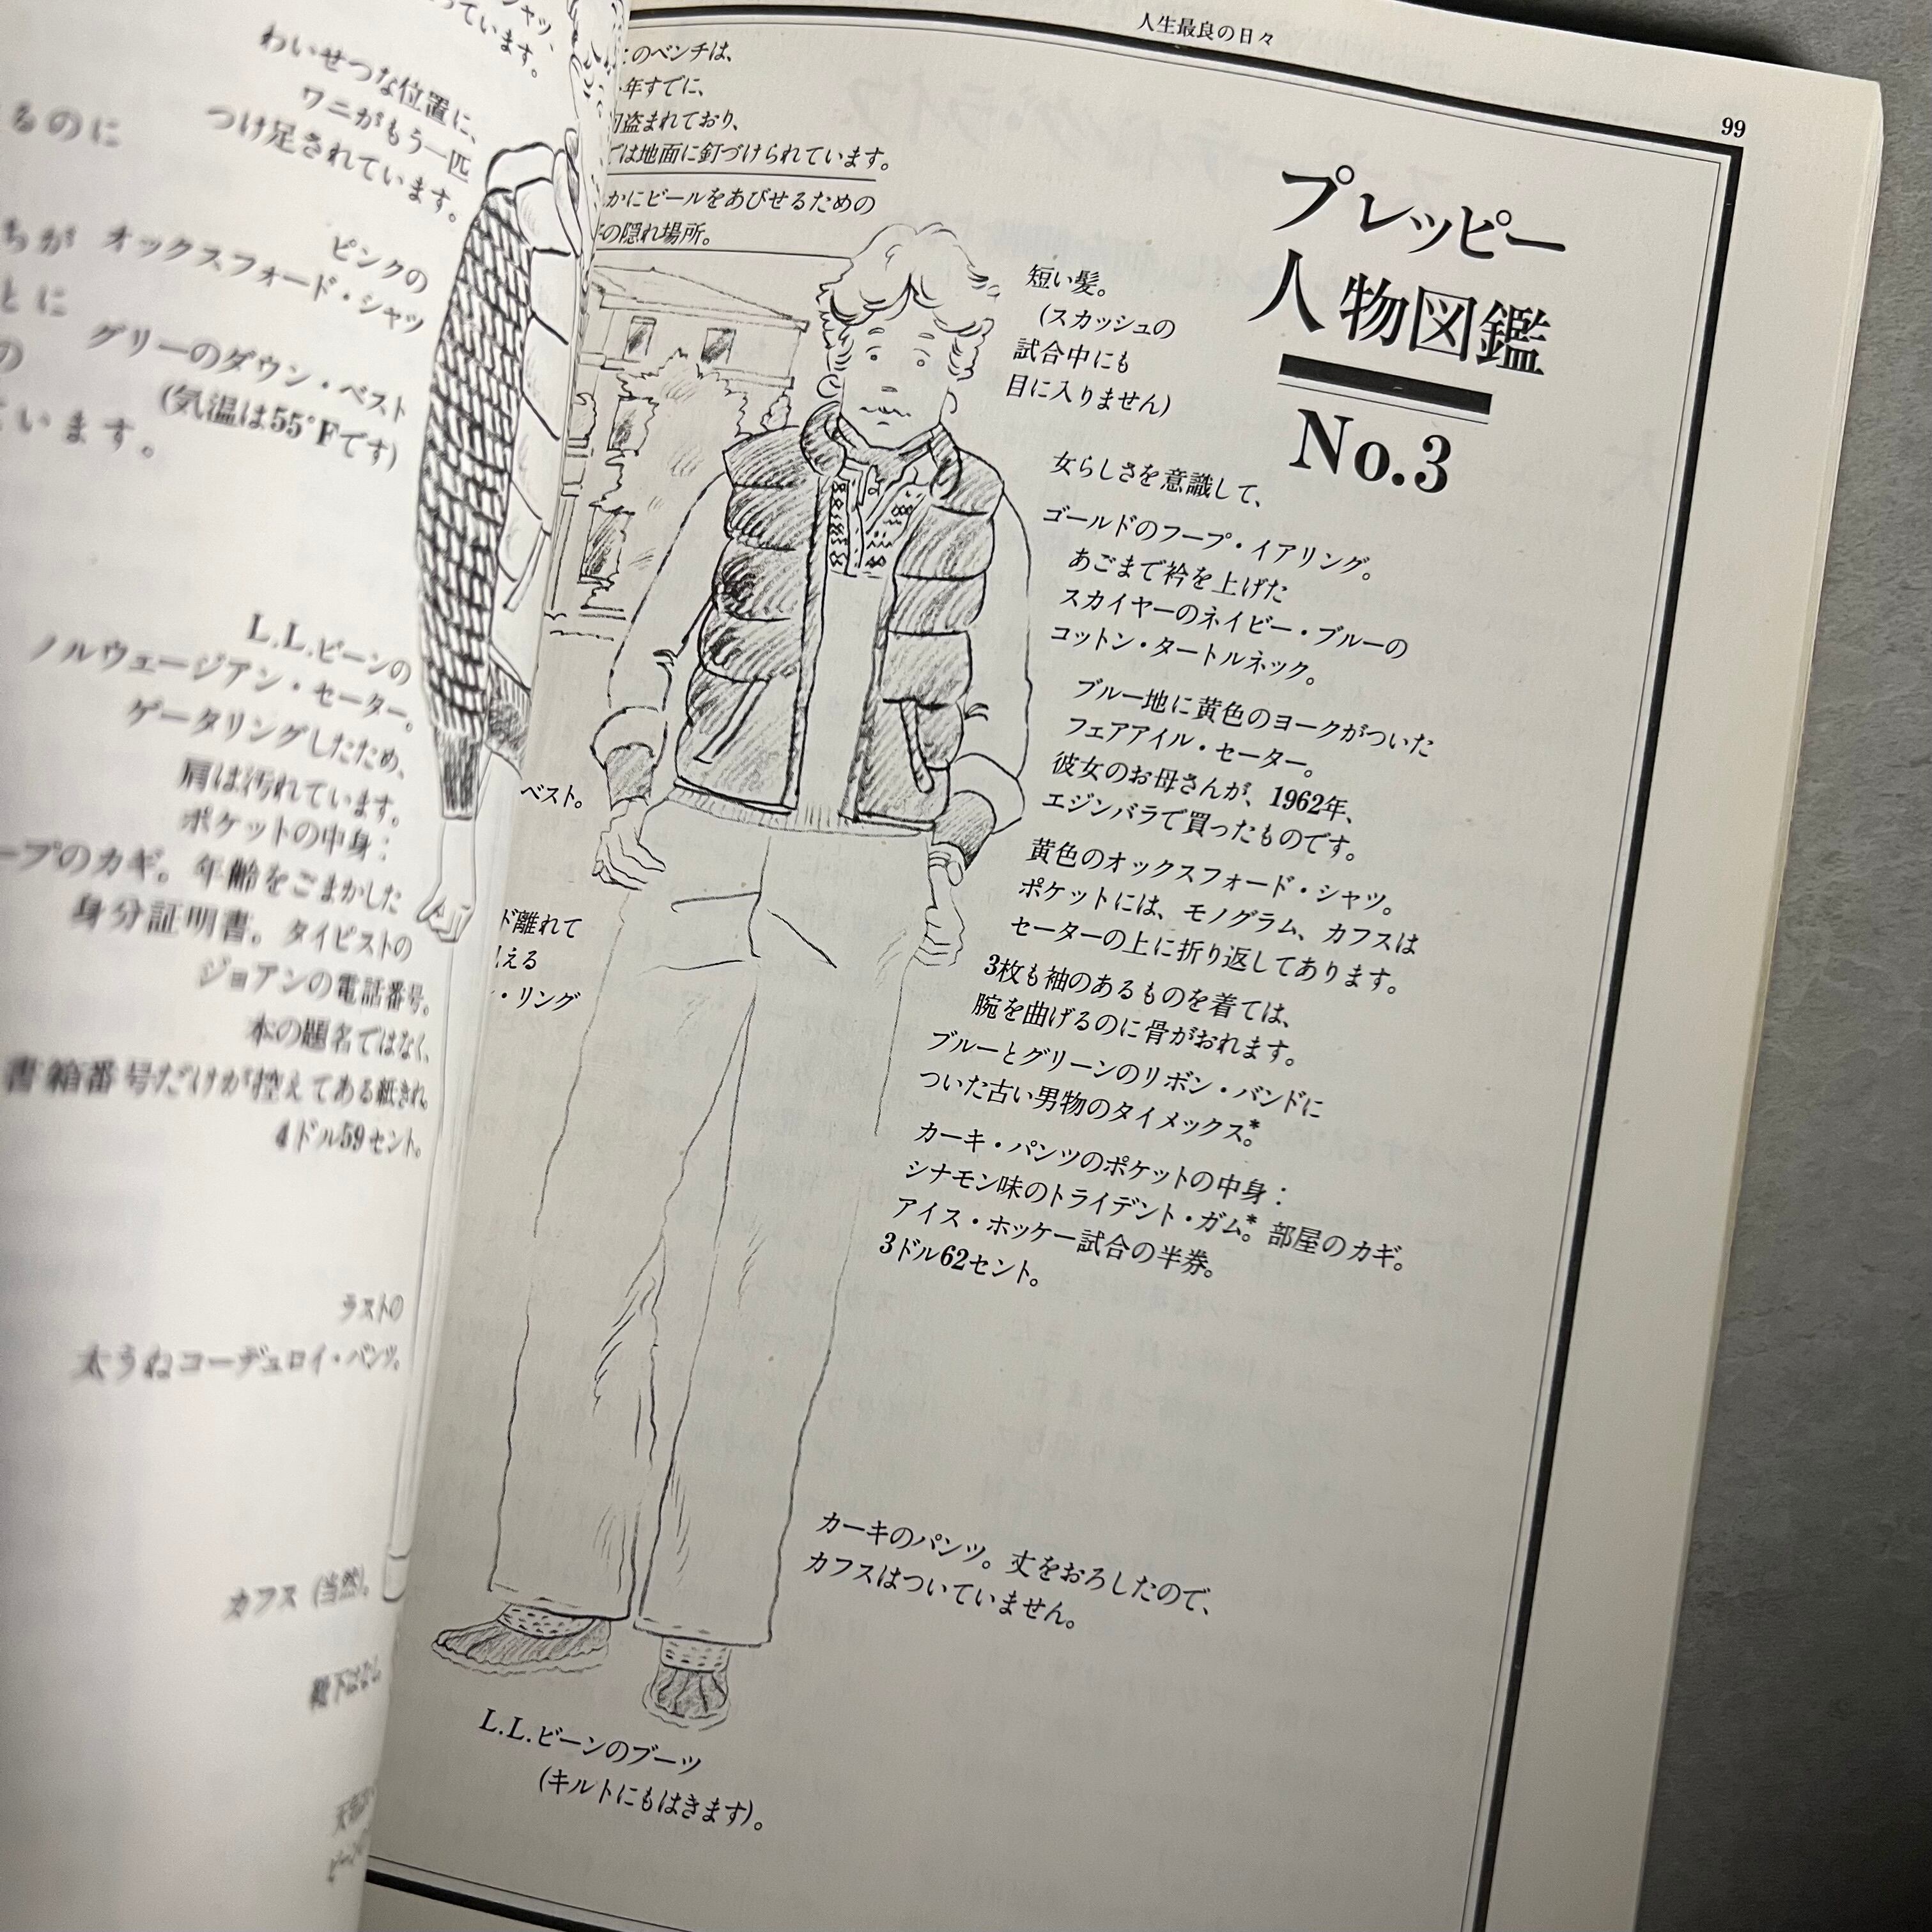 わいせつな位置に、
ワニがもう一匹
つけ足されています。
ピンクの
オックスフォード・シャツ
グリーのダウン・ベスト
(気温は55°Fです)
L.L.ビーンの
ノルウェージアン・セーター。
ゲータリングしたため、
肩は汚れています。
ポケットの中身：
プのカギ。年齢をごまかした
身分証明書。タイピストの
ジョアンの電話番号。
本の題名ではなく、
書箱番号だけが控えてある紙きれ
4ドル59セント。
ラストの
太うねコーデュロイ・パンツ。
カフス (当然)。
人生最良の日々
99
このベンチは、
年すでに、
盗まれており、
では地面に釘づけられています。
かにビールをあびせるための
の隠れ場所。
プレッピー
人物図鑑
No.3
短い髪。
(スカッシュの
試合中にも
目に入りません)
女らしさを意識して、
ゴールドのフープ・イアリング。
あごまで衿を上げた
スカイヤーのネイビー・ブルーの
コットン・タートルネック。
ブルー地に黄色のヨークがついた
フェアアイル・セーター。
彼女のお母さんが、1962年、
エジンバラで買ったものです。
黄色のオックスフォード・シャツ。
ポケットには、モノグラム、カフスは
セーターの上に折り返してあります。
3枚も袖のあるものを着ては、
腕を曲げるのに骨がおれます。
ブルーとグリーンのリボン・バンドに
ついた古い男物のタイメックス*。
カーキ・パンツのポケットの中身：
シナモン味のトライデント・ガム*。部屋のカギ。
アイス・ホッケー試合の半券。
3ドル62セント。
ベスト。
ド離れて
える
・リング
カーキのパンツ。丈をおろしたので、
カフスはついていません。
L.L.ビーンのブーツ
(キルトにもはきます)。